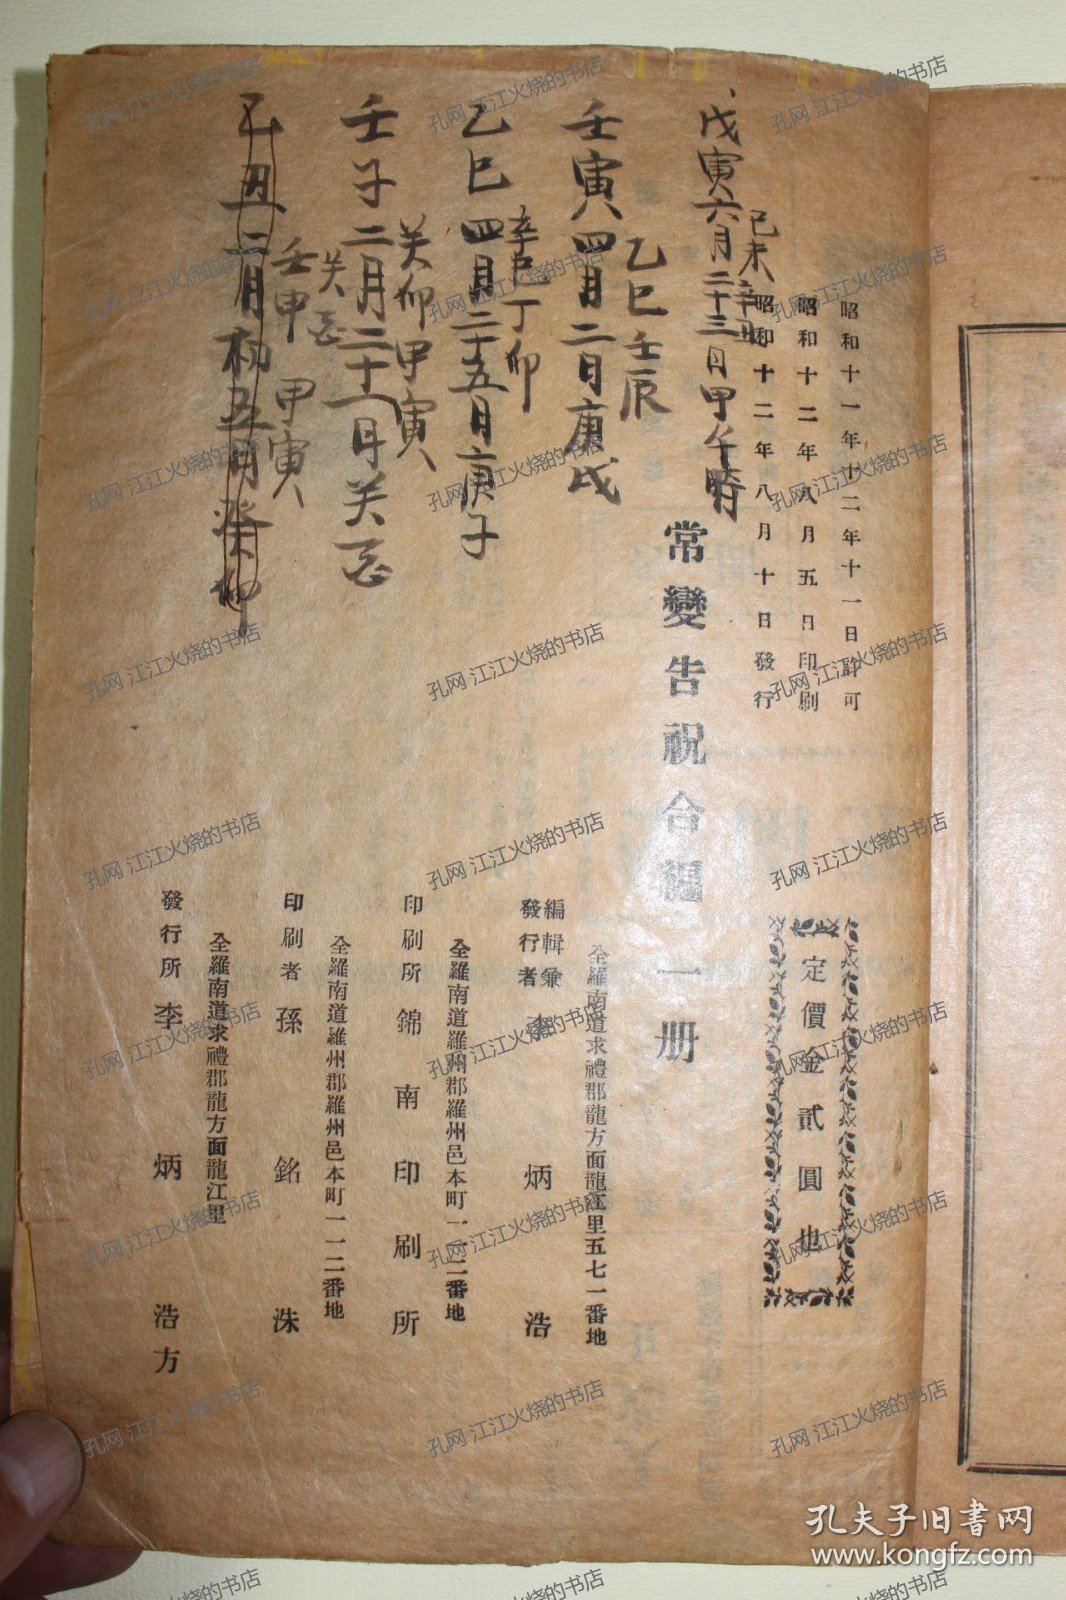 昭和十一年十二年十一日許可
昭和十二年八月五日印刷
昭和十二年八月十日發行
定價金貳圓也
常變告祝合編一册
全羅南道求禮郡龍方面龍江里五七一番地
編輯兼
發行者 李炳浩
全羅南道羅州郡羅州邑本町一一二番地
印刷所 錦南印刷所
全羅南道羅州郡羅州邑本町一一二番地
印刷者 孫銘洙
全羅南道求禮郡龍方面龍江里
發行所 李炳浩方
己未
戊寅六月二十三日甲午時
乙巳壬辰
壬寅四月二日庚戌
辛巳丁卯
乙巳四月二十五日庚子
癸卯甲寅
壬子二月二十一日
壬申 甲寅
己丑二月初五日癸卯
孔网 江江火烧的书店
孔夫子旧书网
www.kongfz.com